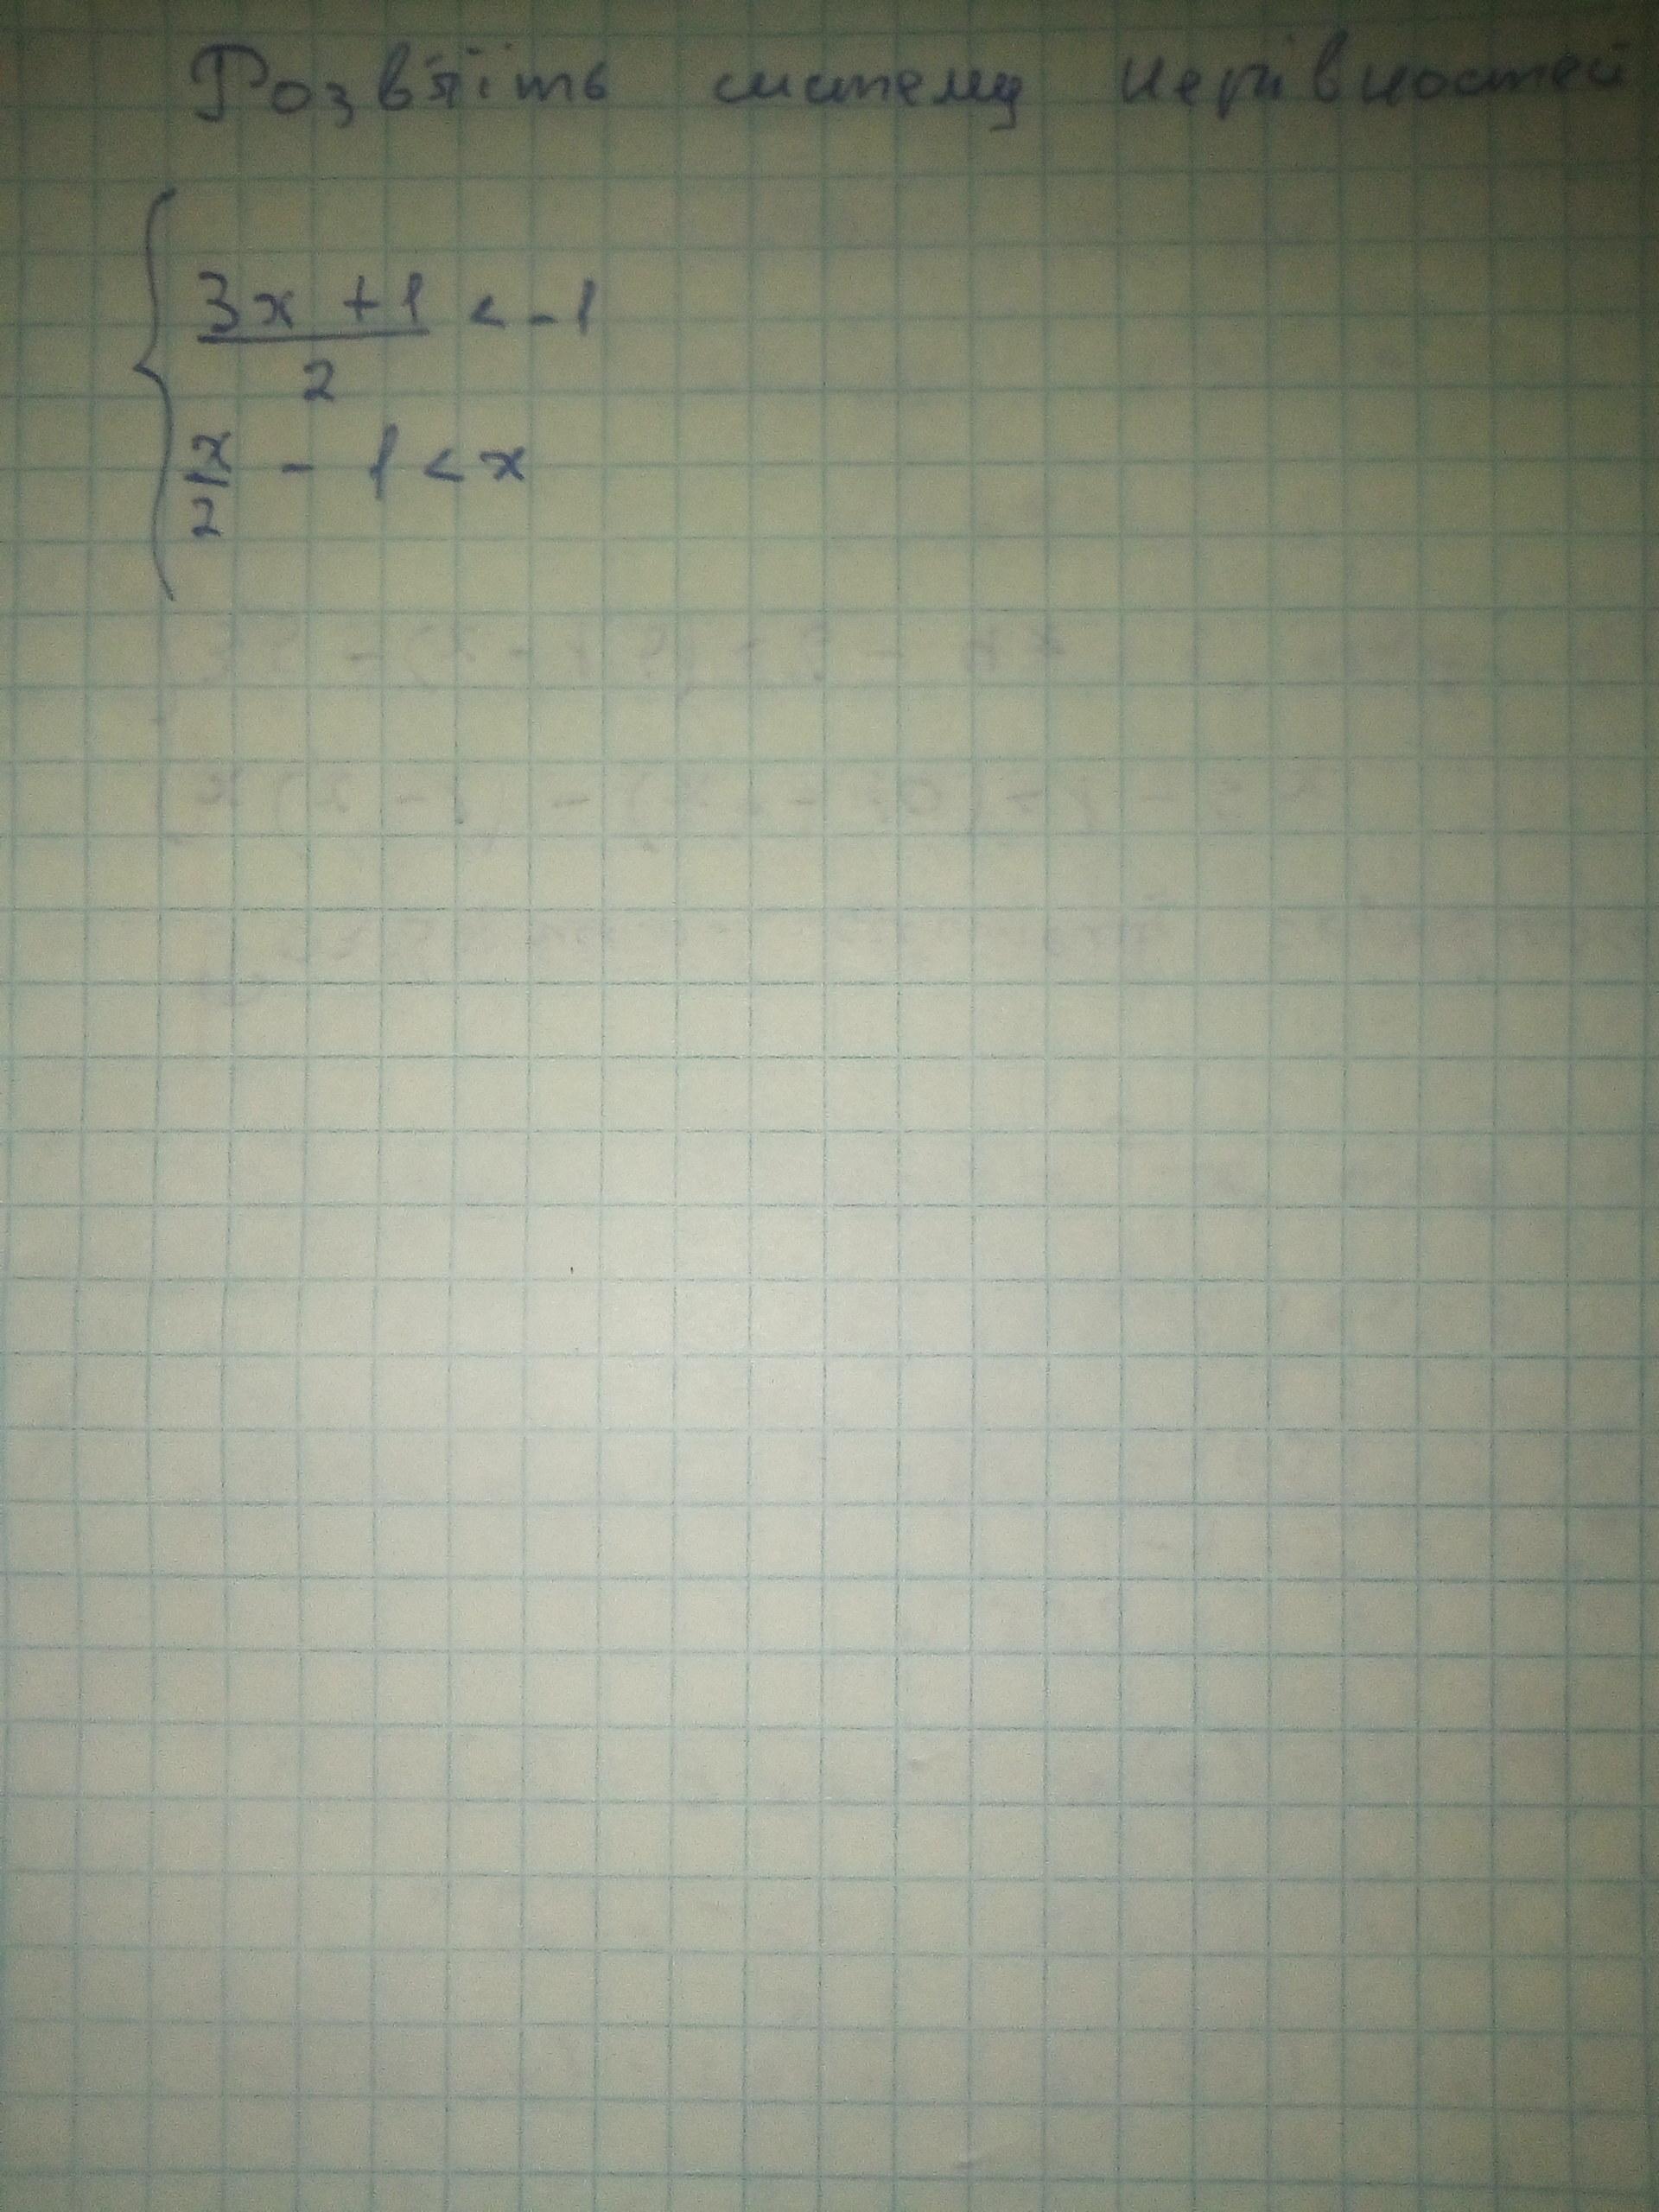 Розвяжіть систему нерівностей
3x + 1 < -1
2
x - 1 < x
2